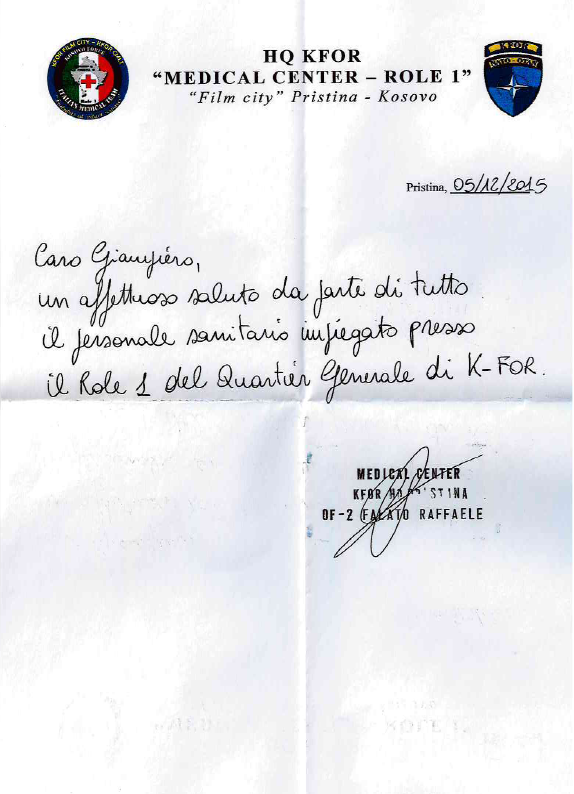 KFOR FILM CITY - KFOR ITALY
ITALIAN MEDICAL TEAM
HQ KFOR
“MEDICAL CENTER – ROLE 1”
“Film city” Pristina - Kosovo
KFOR
NATO - OTAN
Pristina, 05/12/2015
Caro Giampiero,
un affettuoso saluto da parte di tutto
il personale sanitario impiegato presso
il Role 1 del Quartier Generale di K-FOR.
MEDICAL CENTER
KFOR HQ PRISTINA
OF-2 FALATO RAFFAELE